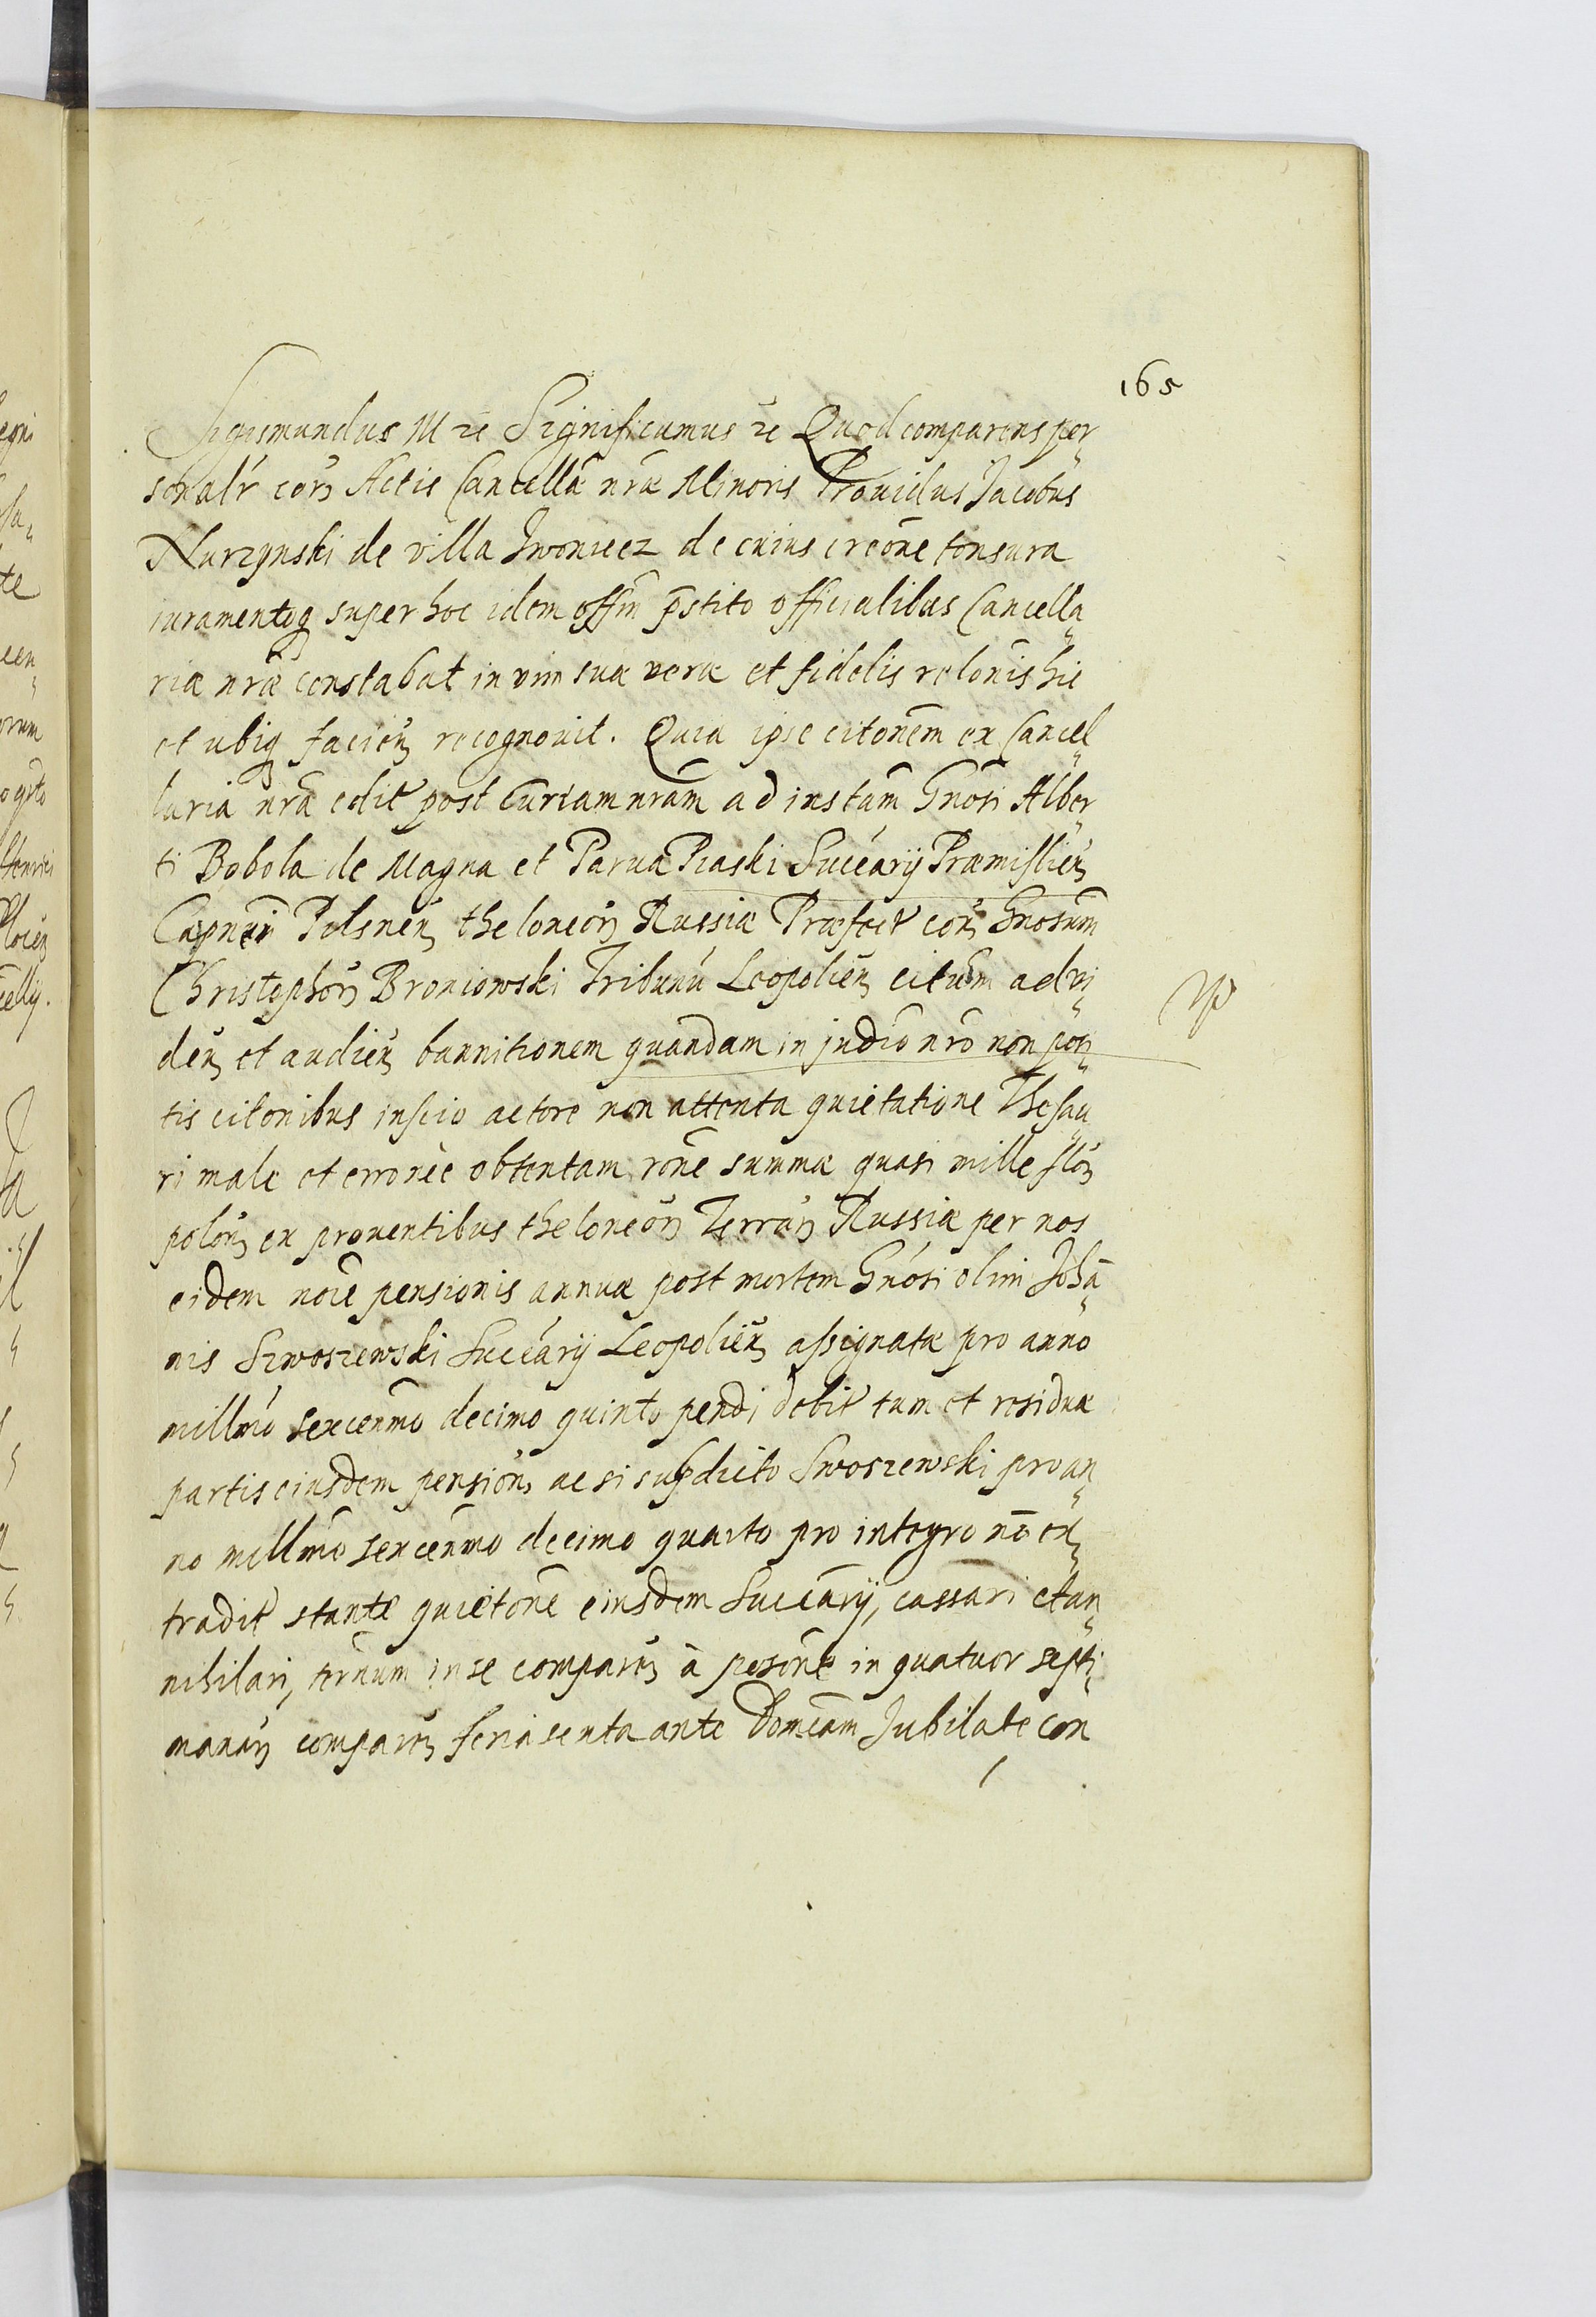 165
Sigismundus III etc Significamus etc Quod comparens per„
sonalr̃ corą Actis Cancellã nr̃æ Minoris Prouidus Jacobus
Nurzynski de villa Jwonicz de cuius creõne tonsura
iuramentoq super hoc idem offm̃ p̃stito officialibus Cancella„
riæ nr̃æ constabat in vim suæ veræ et fidelis relõnis hic
et ubiq facień recognouit. Quia ipse citõnem ex Cancel„
laria nr̃a edit post Curiam nr̃am ad instam̃ Gnõsi Alber„
ti Bobola de Magna et Parua Piaski Succãrij Præmislień
Capnei Pilsneń theloneoR Russiæ Præfect corą Gnosum̃
ChristophoR Broniowski Tribunũ Leopolień citum̃ ad vi„
deń et audień bannitionem quandam in judiõ nr̃o non por„
tis citõnibus inscio actore non attenta quietatione Thesau„
ri male et erroneè obtentam rõne summæ quasi mille floR
poloń ex prouentibus theloneoR TerraR Russiæ per nos
eidem noiẽ pensionis annuæ post mortem Gnõsi olim Johã„
nis Szwoszewski Succãrij Leopolień assignatæ pro anno
millm̃o sexcenm̃o decimo quinto pendi debit tum et residuæ
partis eiusdem pensioń ac si supdicto Swoszewski pro an„
no millm̃o sexcenm̃o decimo quarto pro integro nõ ex„
tradit stante quietõne eiusdem Succãrij, cassari et an„
nihilari, termum in se compareń à posiõne in quatuor septi„
manaR compareń feria sexta ante Domcam̃ Jubilate con